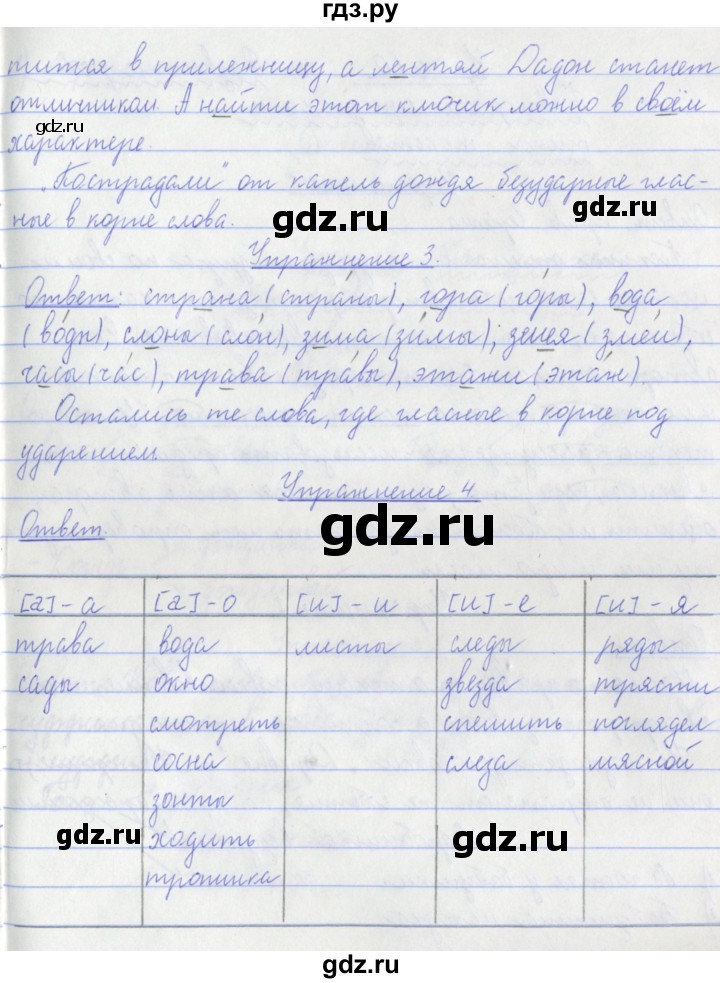 гдз.ру
тится в прилежницу, а лентяй Дадон станет
отличником. А найти этот ключик можно в своём
gdz.ru
характере.
„Пострадали" от капель дождя безударные глас-
ные в корне слова.
gdz.ru
gdz.ru
Упражнение 3.
Ответ: страна (стра́ны), гора (го́ры), вода
(во́ды), слоны (сло́н), зима (зи́мы), змея (зме́и),
часы (ча́с), трава (тра́вы), этажи (эта́ж).
Остались те слова, где гласные в корне под
ударением.
Упражнение 4.
gdz.ru
Ответ.
[а]-а [а]-о [и]-и [и]-е [и]-я
трава вода листы следы ряды
сады окно звезда трясти
смотреть спешить поглядел
сосна слеза мясной
зонты
gdz.ru ходить gdz.ru
тропинка
gdz.ru